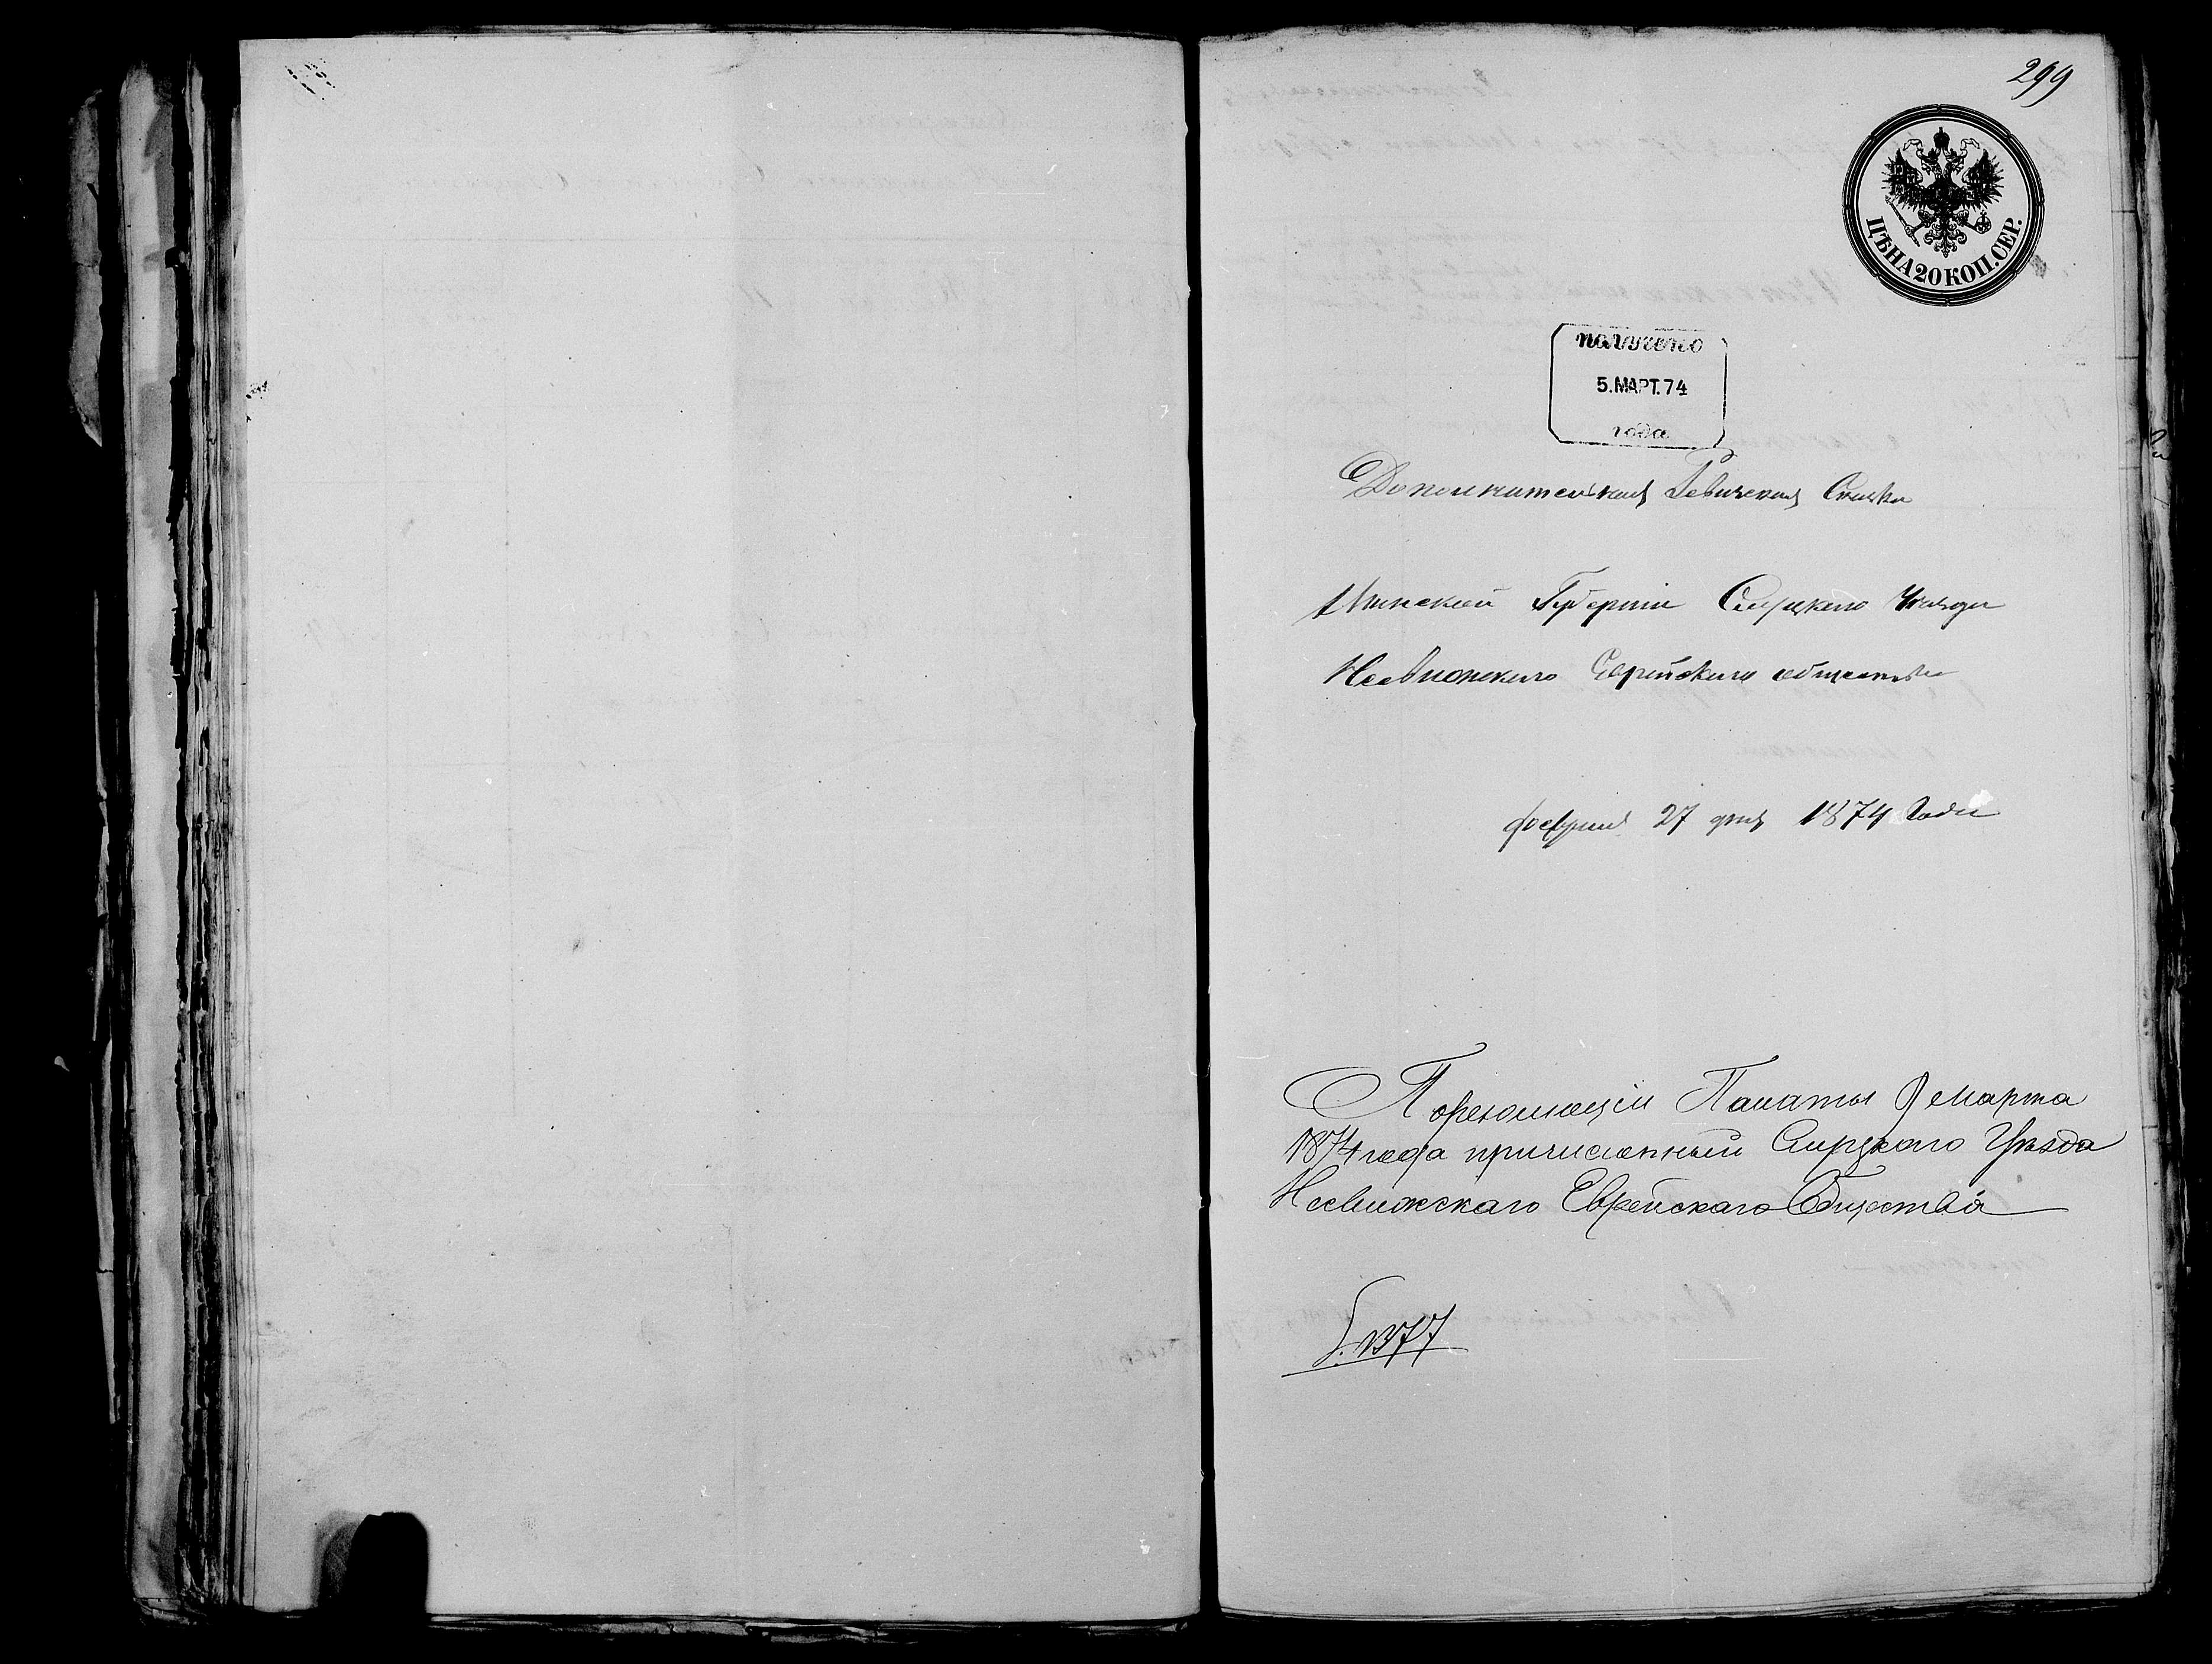 299
ЦѢНА 20 КОП. СЕР.
получено
5. МАРТ. 74
года
Дополнительная Ревизская Сказка
Минской Губерніи Слуцкаго Уѣзда
Несвижскаго Еврейскаго общества
февраля 27 дня 1874 Года
По резолюціи Палаты 9 марта
1874 года причисленный Слуцкаго Уѣзда
Несвижскаго Еврейскаго Общества
1377